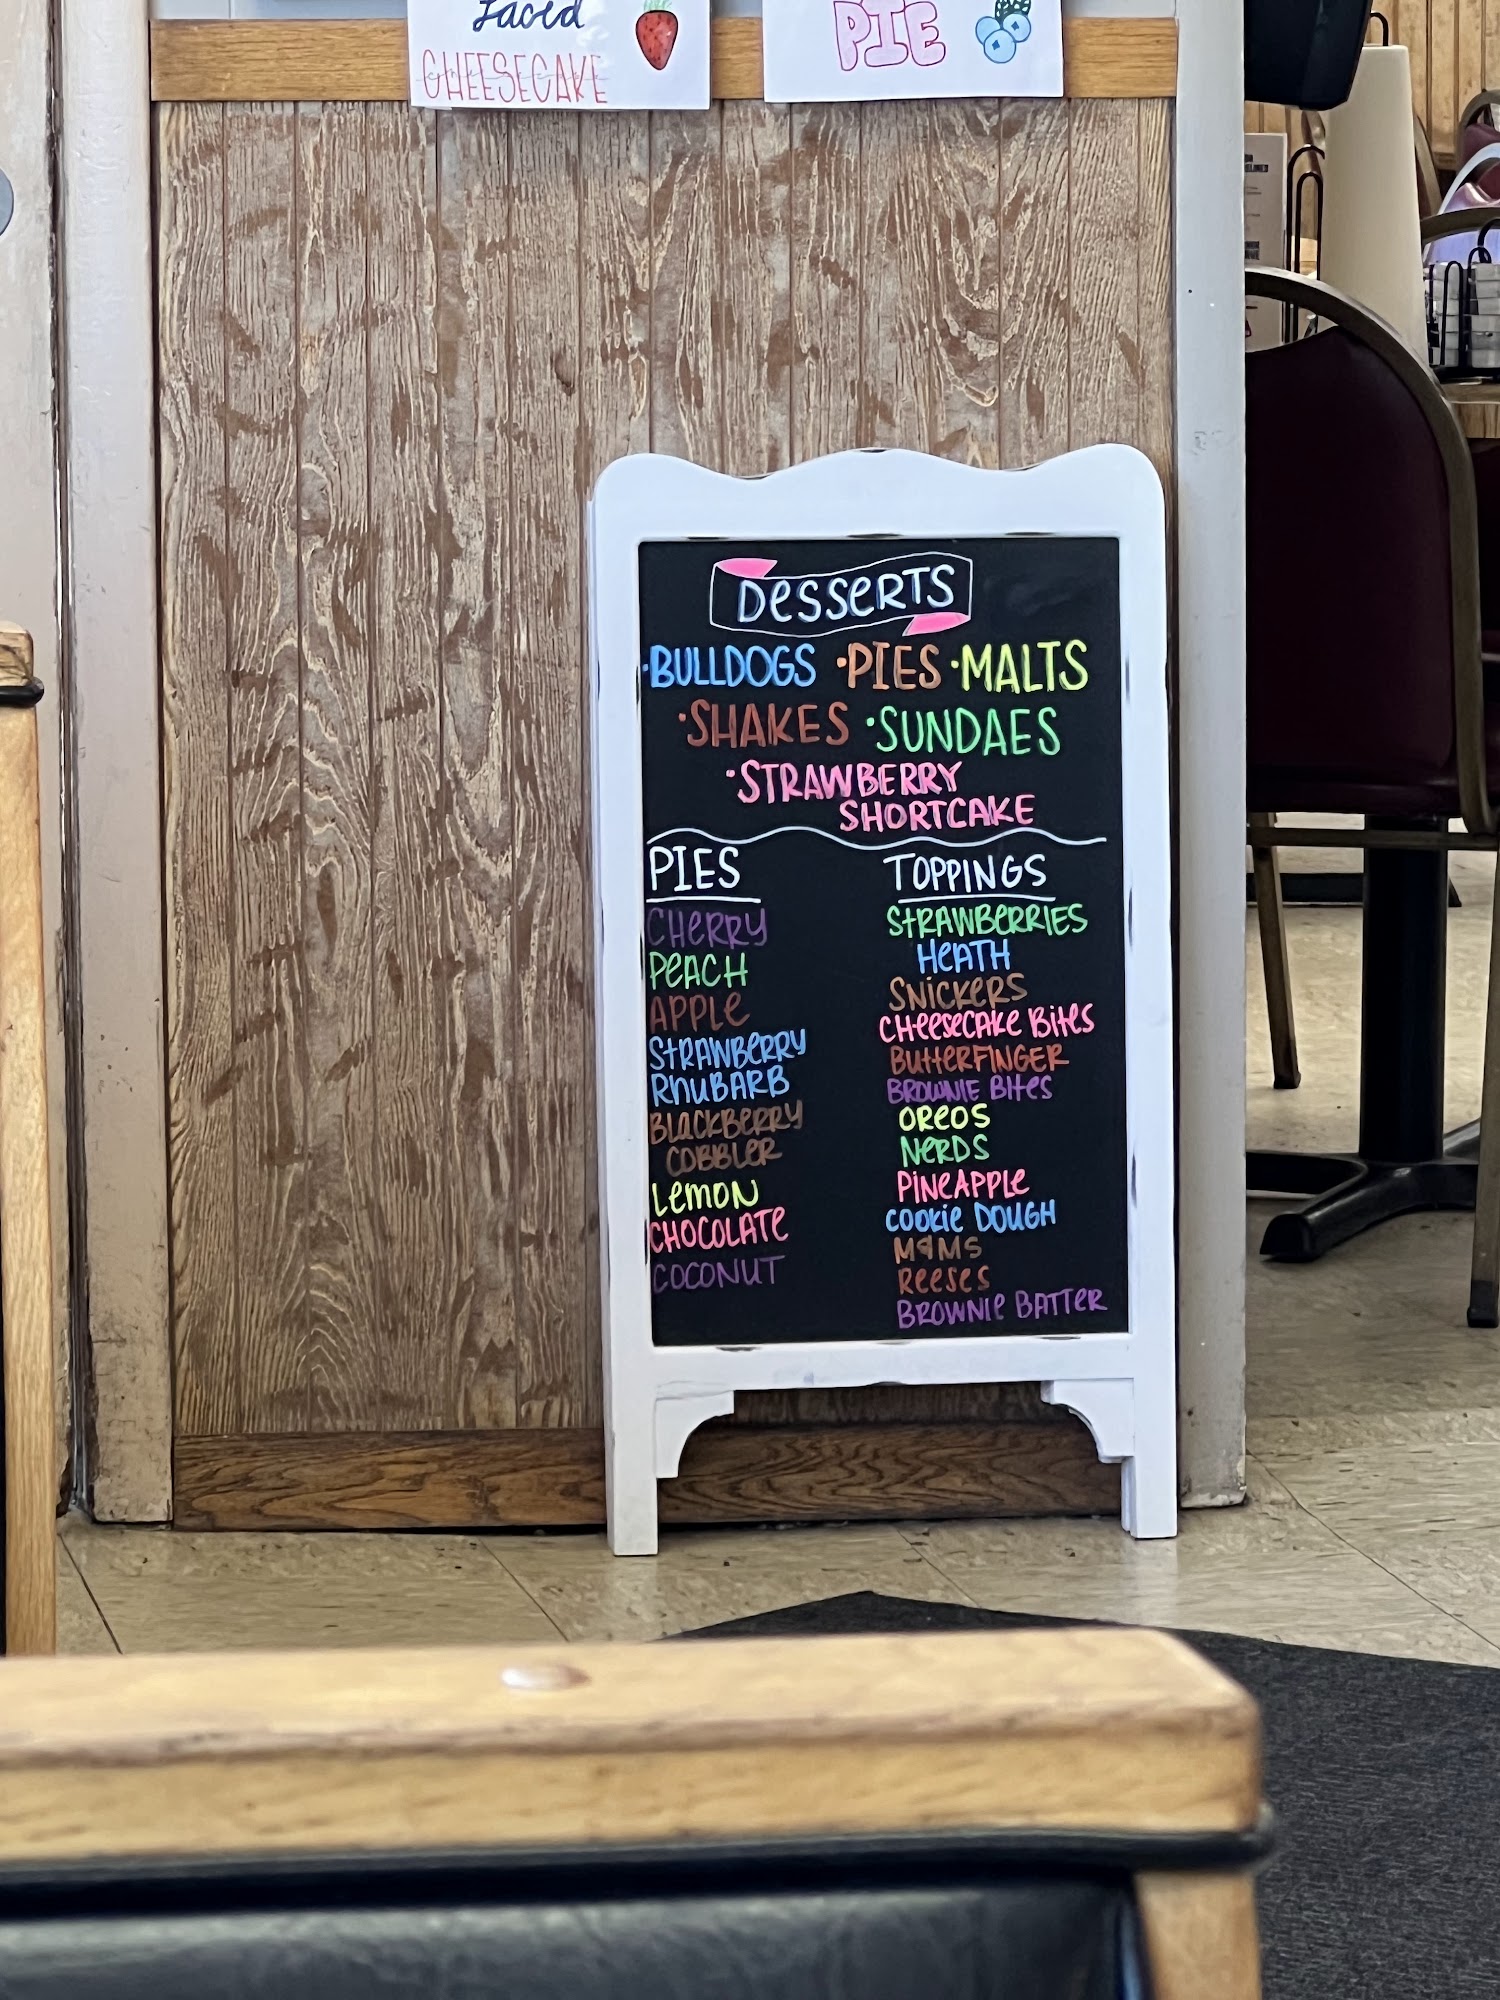 Laced
CHEESECAKE
PIE
DESSERTS
·BULLDOGS ·PIES ·MALTS
·SHAKES ·SUNDAES
·STRAWBERRY
SHORTCAKE
PIES
CHERRY
PEACH
APPLE
STRAWBERRY
RHUBARB
BLACKBERRY
COBBLER
LEMON
CHOCOLATE
COCONUT
TOPPINGS
STRAWBERRIES
HEATH
SNICKERS
CHEESECAKE BITES
BUTTERFINGER
BROWNIE BITES
OREOS
NERDS
PINEAPPLE
COOKIE DOUGH
M&MS
REESES
BROWNIE BATTER